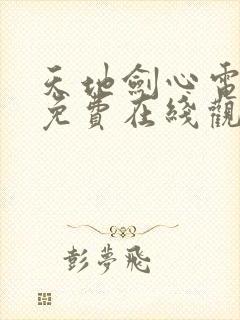 天地劍心電
免費在綫觀
彭夢飛